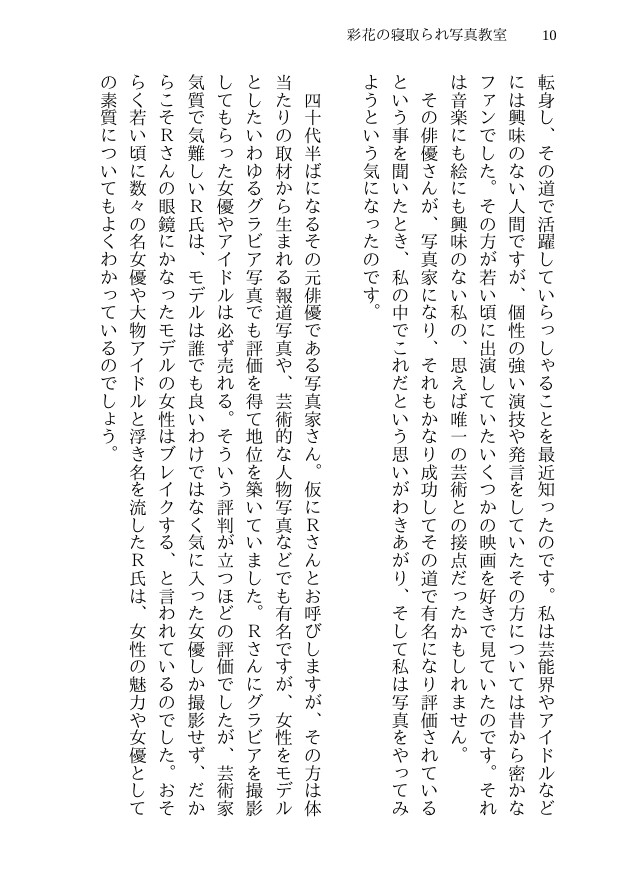 彩花の寝取られ写真教室 10
転身し、その道で活躍していらっしゃることを最近知ったのです。私は芸能界やアイドルなど
には興味のない人間ですが、個性の強い演技や発言をしていたその方については昔から密かな
ファンでした。その方が若い頃に出演していたいくつかの映画を好きで見ていたのです。それ
は音楽にも絵にも興味のない私の、思えば唯一の芸術との接点だったかもしれません。
その俳優さんが、写真家になり、それもかなり成功してその道で有名になり評価されている
という事を聞いたとき、私の中でこれだという思いがわきあがり、そして私は写真をやってみ
ようという気になったのです。
四十代半ばになるその元俳優である写真家さん。仮にRさんとお呼びしますが、その方は体
当たりの取材から生まれる報道写真や、芸術的な人物写真などでも有名ですが、女性をモデル
としたいわゆるグラビア写真でも評価を得て地位を築いていました。Rさんにグラビアを撮影
してもらった女優やアイドルは必ず売れる。そういう評判が立つほどの評価でしたが、芸術家
気質で気難しいR氏は、モデルは誰でも良いわけではなく気に入った女優しか撮影せず、だか
らこそRさんの眼鏡にかなったモデルの女性はブレイクする、と言われているのでした。おそ
らく若い頃に数々の名女優や大物アイドルと浮き名を流したR氏は、女性の魅力や女優として
の素質についてもよくわかっているのでしょう。